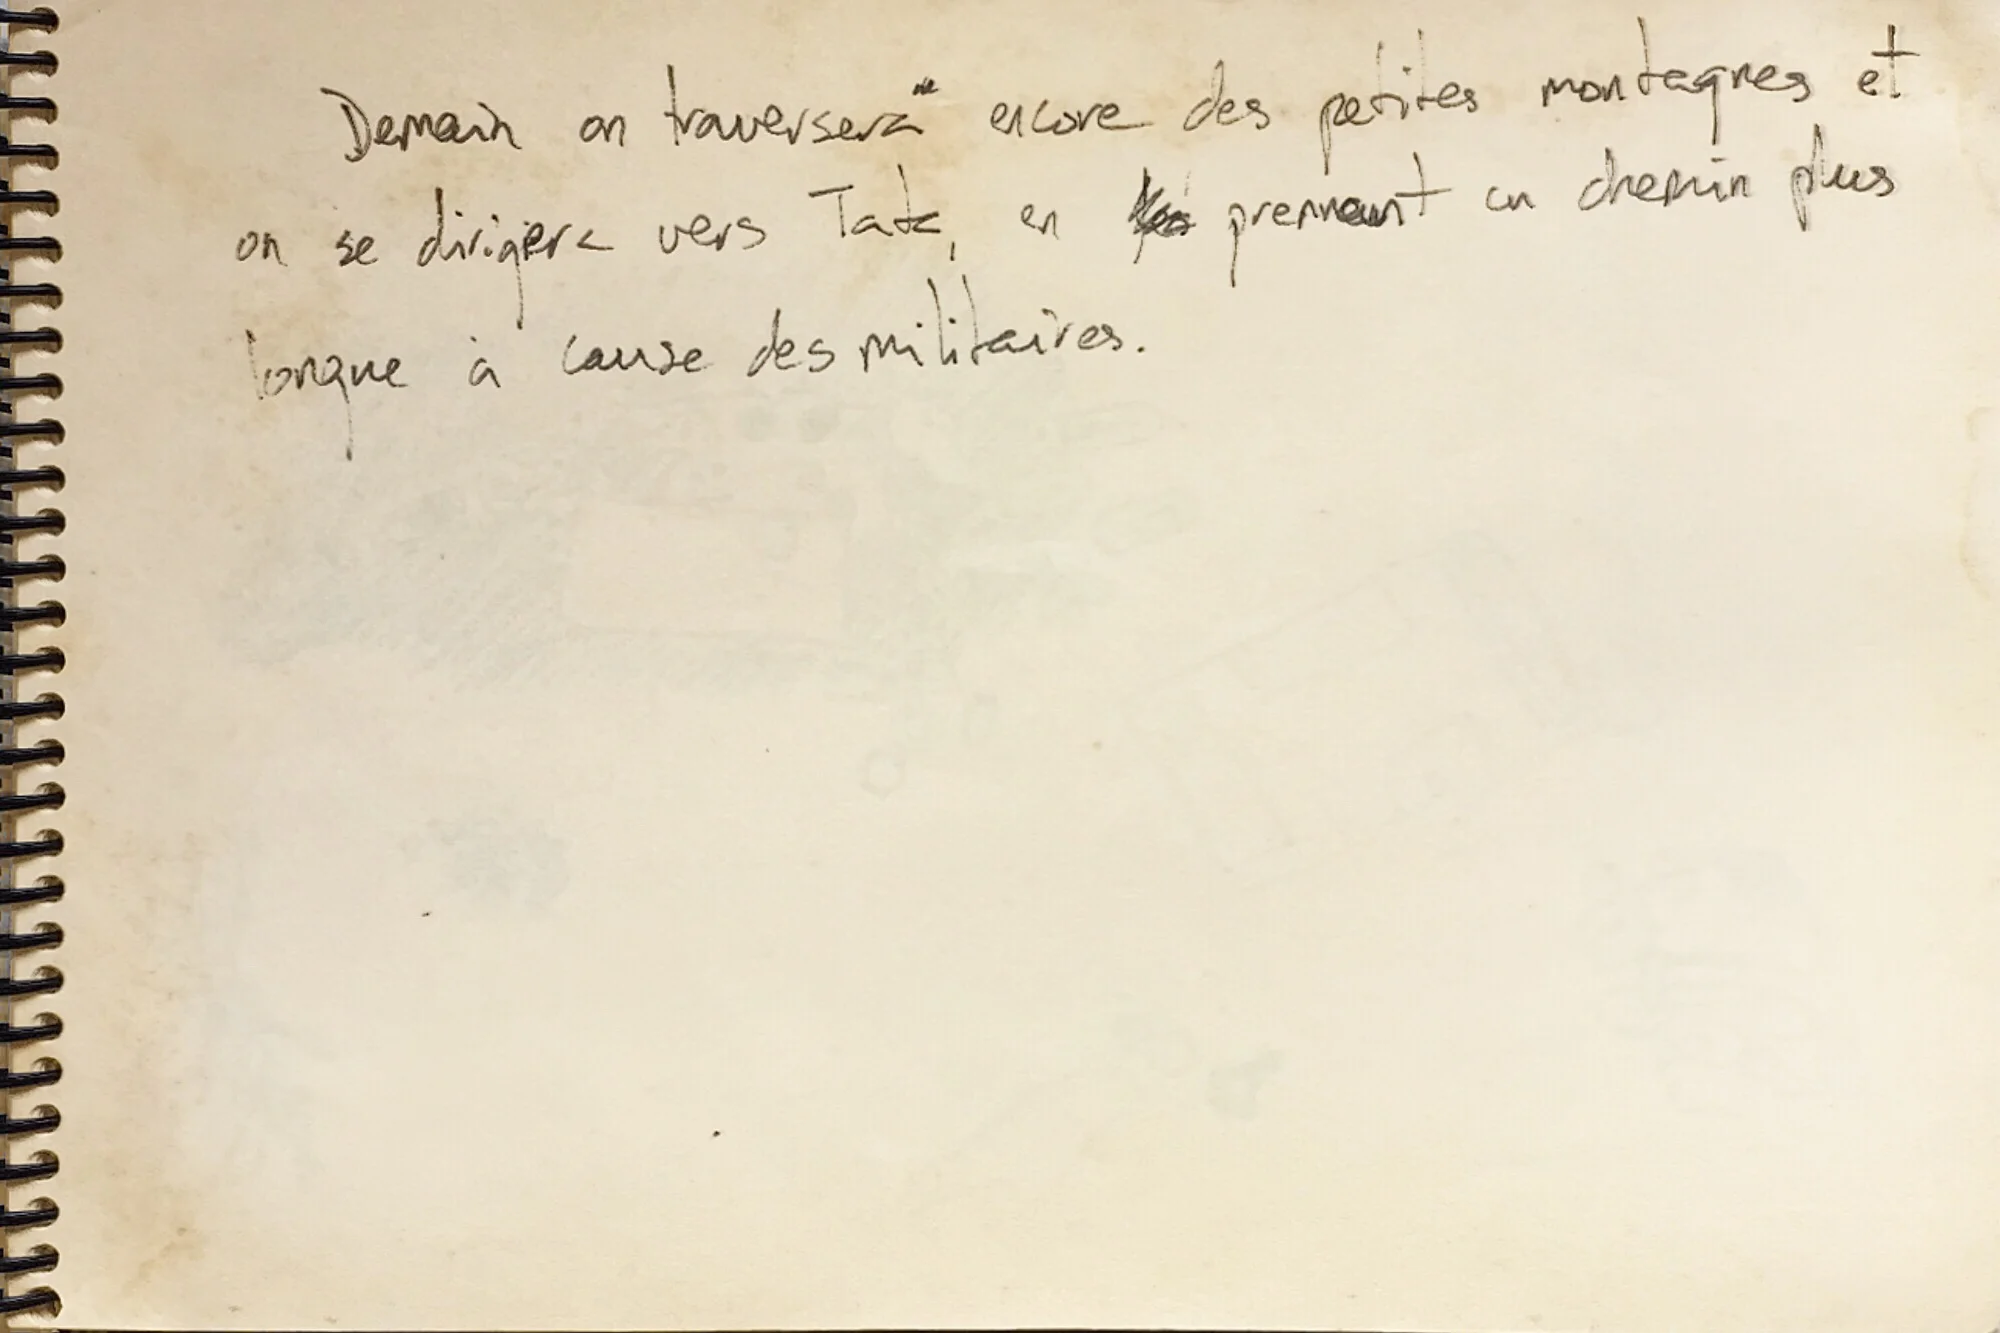 Demain on traversera encore des petites montagnes et
on se dirigera vers Tata, en prennant un chemin plus
longue à cause des militaires.